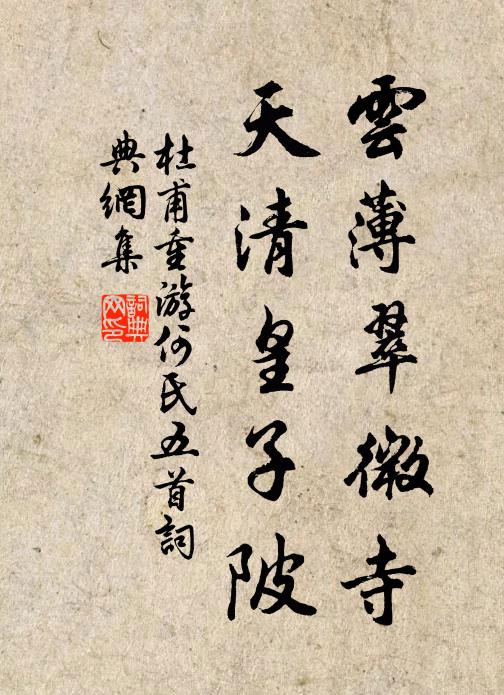 雲薄翠微寺
天清皇子陂
杜甫重游何氏五首詞
典網集
詞典網印